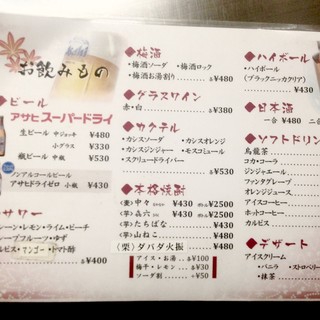 お飲みもの
◆ビール
アサヒスーパードライ
生ビール 中ジョッキ ¥480
小グラス ¥330
瓶ビール 中瓶 ¥530
ノンアルコールビール
アサヒドライゼロ 小瓶 ¥430
サワー
レモン・ライム・ピーチ
ープフルーツ・ゆず
ルピス・マンゴー・トマト酢
各¥400
◆梅酒
・梅酒ソーダ ・梅酒ロック
・梅酒お湯割り 各¥480
◆グラスワイン
・赤・白 各¥380
◆カクテル
・カシスソーダ ・カシスオレンジ
・カシスジンジャー ・モスコミュール
・スクリュードライバー 各¥530
◆本格焼酎
(麦)中々 ¥430 ボトル¥2500
(芋)㐂六 ¥430 ボトル¥2500
(芋)たちばな ¥430
(芋)山ねこ ¥480
(栗)ダバダ火振 ¥480
アイス・お湯 各¥100
梅干・レモン 各¥30
ソーダ割 +¥50
◆ハイボール
・ハイボール
(ブラックニッカクリア)
¥430
◆日本酒
一合 ¥480 二合
◆ソフトドリン
烏龍茶
コカ・コーラ
ジンジャエール
ファンタグレープ
オレンジジュース
アイスコーヒー
ホットコーヒー
カルピス
◆デザート
アイスクリーム
・バニラ ・ストロベリー
・抹茶